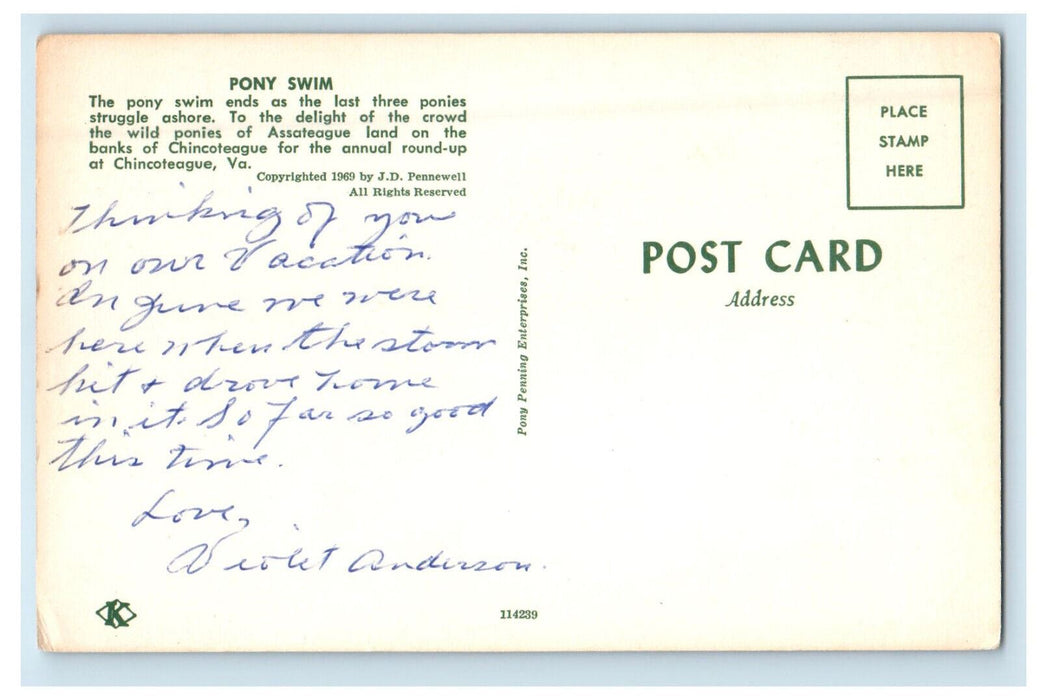 PONY SWIM
The pony swim ends as the last three ponies
struggle ashore. To the delight of the crowd
the wild ponies of Assateague land on the
banks of Chincoteague for the annual round-up
at Chincoteague, Va.
Copyrighted 1969 by J.D. Pennewell
All Rights Reserved
Thinking of you
on our Vacation.
In June we were
here when the storm
hit + drove home
in it. So far so good
this time.
Love,
Violet Anderson.
K
Pony Penning Enterprises, Inc.
114239
PLACE
STAMP
HERE
POST CARD
Address